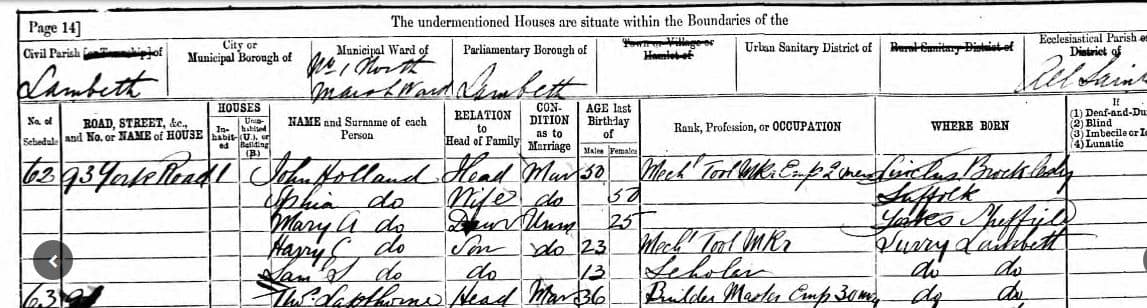 Page 14]
The undermentioned Houses are situate within the Boundaries of the
Civil Parish [or Township] of
City or Municipal Borough of
Municipal Ward of
Parliamentary Borough of
Town or Village or Hamlet of
Urban Sanitary District of
Rural Sanitary District of
Ecclesiastical Parish or District of
Lambeth
No 1 North Marsh Ward
Lambeth
All Saint
No. of Schedule
ROAD, STREET, &c., and No. or NAME of HOUSE
HOUSES
In-habit-ed
Unin-habited (U.), or Building (B.)
NAME and Surname of each Person
RELATION to Head of Family
CON-DITION as to Marriage
AGE last Birthday of
Males
Females
Rank, Profession, or OCCUPATION
WHERE BORN
If
(1) Deaf-and-Du
(2) Blind
(3) Imbecile or I
(4) Lunatic
62 93 York Road 1 John Holland Head Mar 50 Mechl Tool Mkr Emp 2 men
Sphia do Wife do 50 Suffolk
Mary A do Daur Unm 25 Yorks Sheffield
Harry C do Son do 23 Mechl Tool Mkr Surry Lambeth
Saml do do 13 Scholar do do
63 Thos Lapthorne Head Mar 36 Builder Master Emp 30 men do do